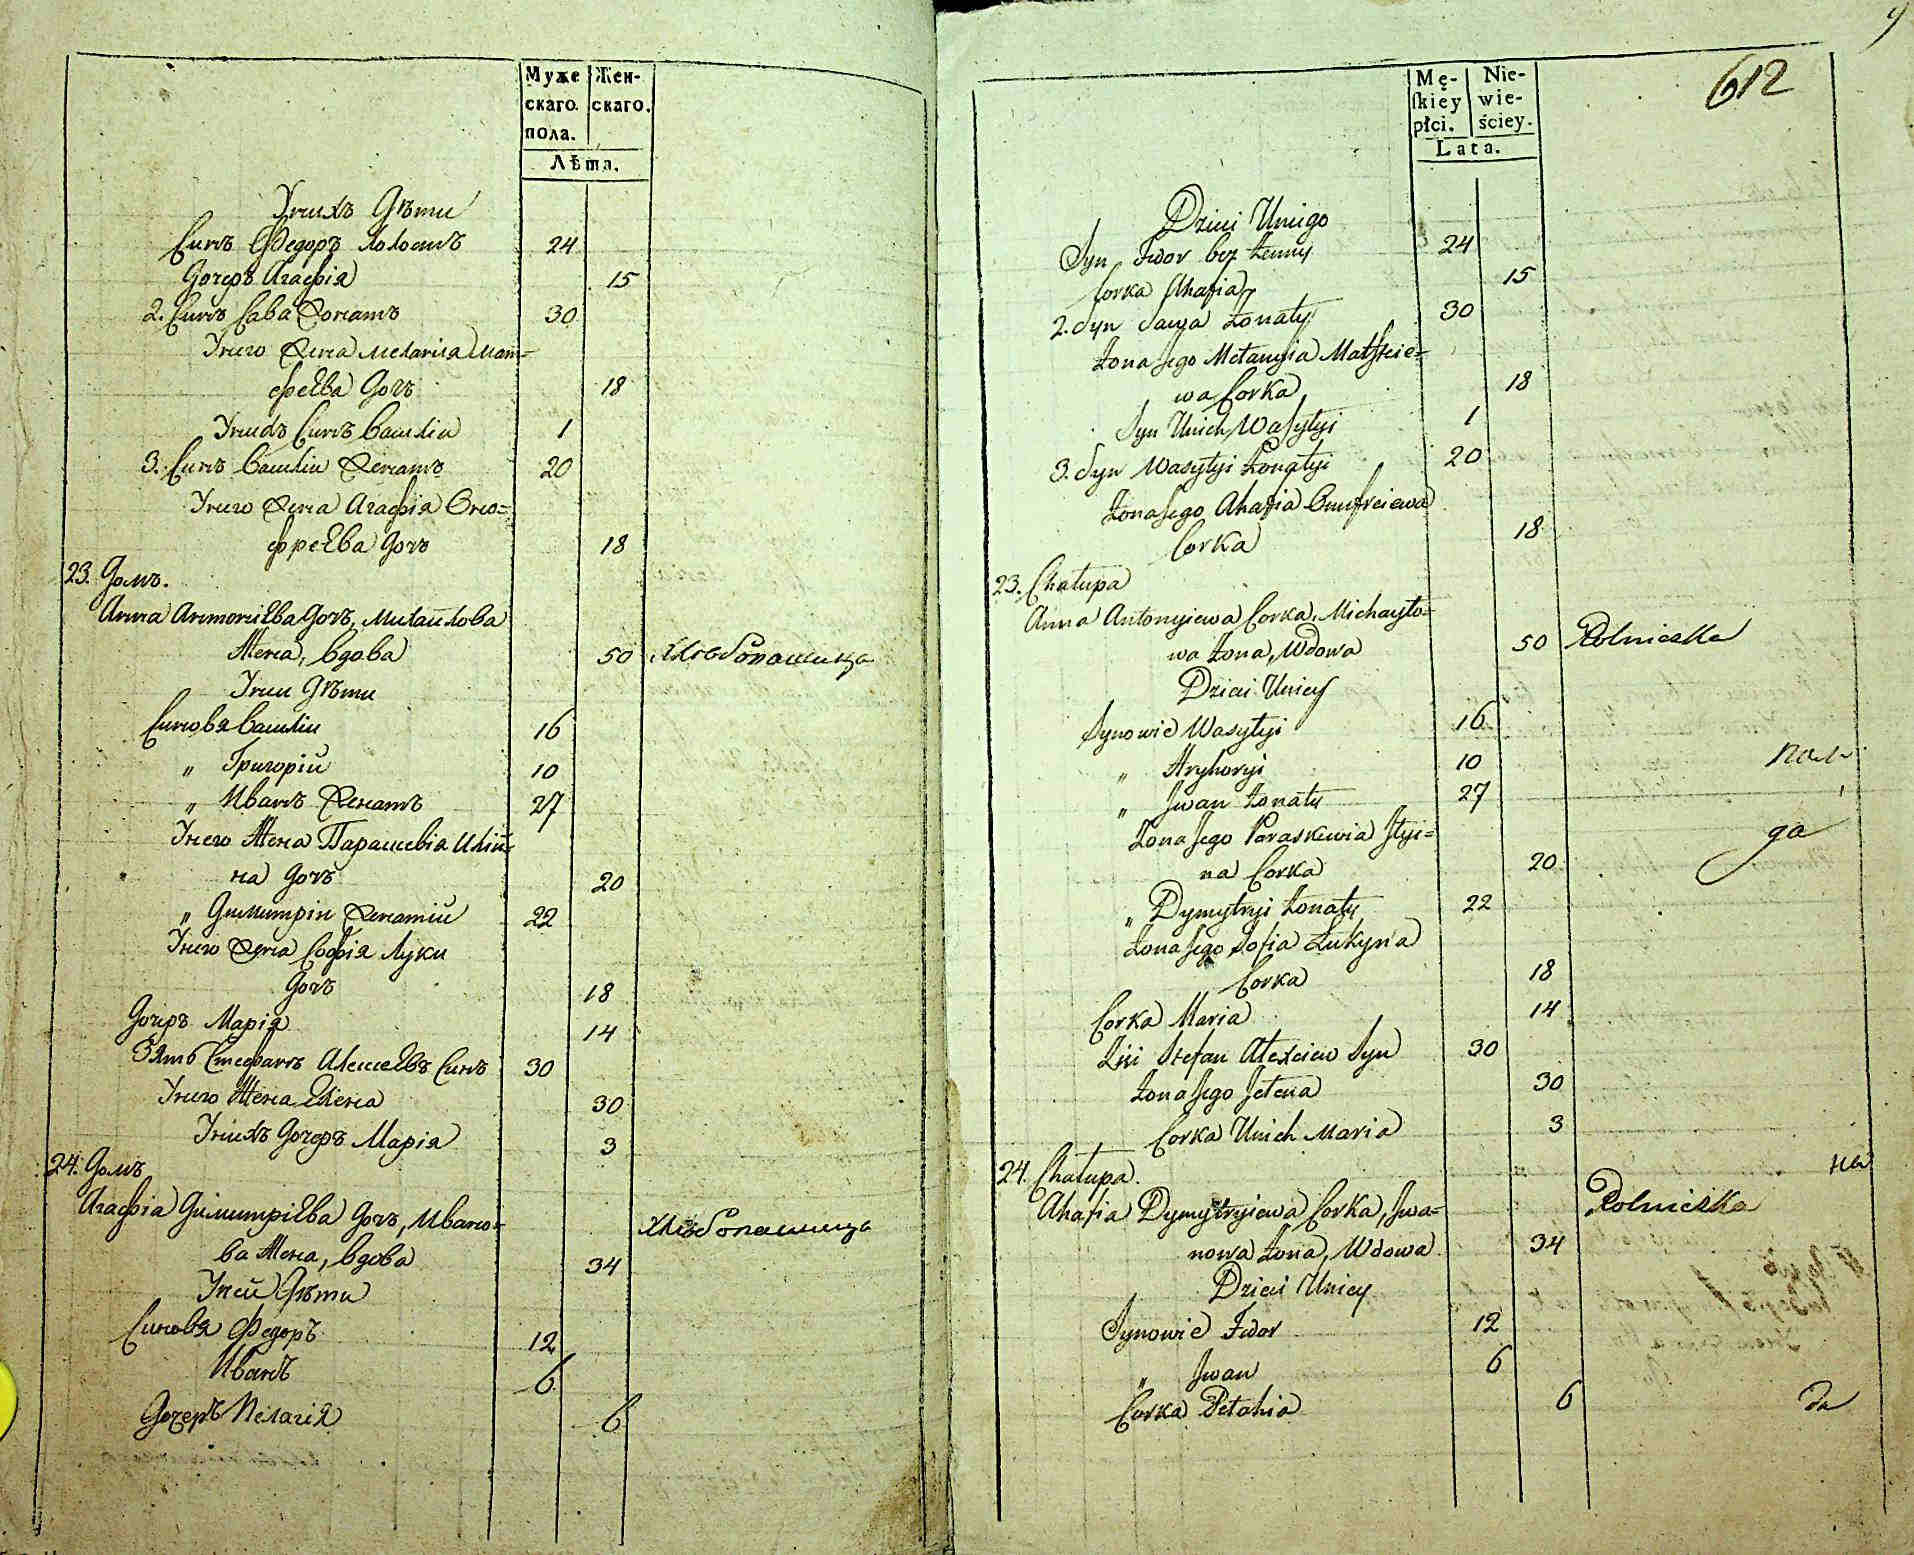 Муже
скаго
пола.
Жен-
скаго.
Лѣта.
Унихъ Дѣти
Синъ Федоръ Холостъ 24
Дочеръ Агафія 15
2. Синъ Сава Женатъ 30
Унего Жена Меланія Мат=
фѣева Дочъ 18
Унихъ Синъ Василіи 1
3. Синъ Василіи Женатъ 20
Унего Жена Агафія Оно=
фрѣева Дочъ 18
23. Домъ.
Анна Антоніева Дочъ, Михайлова
Жена, Вдова 50 Хлѣбопашица
Унеи Дѣти
Синовя Василіи 16
„ Григорій 10
„ Иванъ Женатъ 27
Унего Жена Параскевія Илій=
на Дочъ 20
„ Димитрін Женатій 22
Унего Жена Софія Луки
Дочъ 18
Дочеръ Марія 14
Зять Стефанъ Алексѣевъ Синъ 30
Унего Жена Елена 30
Унихъ Дочеръ Марія 3
24. Домъ
Агафіа Димитріева Дочъ, Ивано=
ва Жена, Вдова 34 Хлѣбопашица
Уней Дѣти
Синовя Федоръ 12
Иванъ 6
Дочеръ Пелагія 6
9
612
Mę-
skiey
płci.
Nie-
wie-
ściey.
Lata.
Dzieci Uniego
Syn Fedor bez Zenny 24
Corka Ahafia 15
2. Syn Sawa Zonaty 30
Zona Jego Mełanyia Matfieie=
wa Corka 18
Syn Unich Wasylyi 1
3. Syn Wasylyi Zonatyi 20
Zona Jego Ahafia Onufreiewa
Corka 18
23. Chałupa
Anna Antonyiewa Corka, Michayło=
wa Zona, Wdowa 50 Rolniczka
Dzieci Unicy
Synowie Wasylyi 16
„ Hryhoryi 10
„ Jwan Zonaty 27
Zona Jego Paraskewia Jlyi=
na Corka 20
„ Dymytryi Zonaty 22
Zona Jego Sofia Łukyna
Corka 18
Corka Maria 14
Zięć Stefan Alexeiew Syn 30
Zona Jego Jełena 30
Corka Unich Maria 3
24. Chałupa.
Ahafia Dymytryiewa Corka, Jwa=
nowa Zona, Wdowa 34 Rolniczka
Dzieci Unicy
Synowie Fedor 12
„ Jwan 6
Corka Pełahia 6
да
на